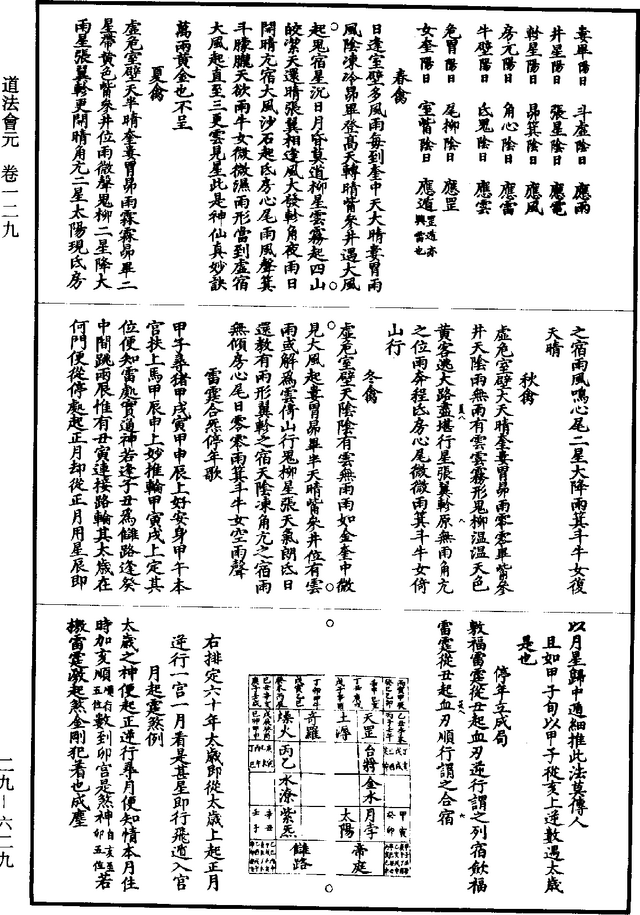 道法會元　卷一二九
婁畢陽日　斗虛陰日　應雨
井星陽日　張星陰日　應電
軫星陽日　昴箕陰日　應風
房亢陽日　角心陰日　應雷
牛壁陽日　氐鬼陰日　應雲
危胃陽日　尾柳陰日　應罡
女奎陽日　室觜陰日　應遁罡遁亦興雷也
春禽
日逢室壁多風雨每到奎中天大晴婁胃雨
風陰凍冷昴畢登高天轉晴觜參井遇大風
起鬼宿星沉日月昏莫道柳星雲霧起四山
皎紫天還晴張翼相逢風大發軫角夜雨日
間晴亢宿大風沙石起氐房心尾雨風聲箕
斗朦朧天欲雨牛女微微濕雨形當到虛宿
大風起直至三更雲見星此是神仙真妙訣
萬兩黃金也不呈
夏禽
虛危室壁天半晴奎婁胃昴雨霖霖昴畢二
星帶黃色觜參井位雨微聲鬼柳二星降大
雨星張翼軫更閉晴角亢二星太陽現氐房
之宿雨風鳴心尾二星大降雨箕斗牛女復
天晴
秋禽
虛危室壁大天晴奎婁胃昴雨零零畢觜參
井天陰雨無雨有雲雲霧形鬼柳溫溫天色
黃客逃大路盡堪行星張翼軫原無雨角亢
之位雨奔程氐房心尾微微雨箕斗牛女倚
山行
冬禽
虛危室壁天陰陰有雲無雨雨如金奎中微
見大風起婁胃昴畢半天晴觜參井位有雲
雨或解為雲傍山行鬼柳星張天氣朗氐日
還教有雨形翼軫之宿天陰凍角亢之宿雨
無傾房心尾日零零雨箕斗牛女空雨聲
雷霆合炁停年歌
甲子尋豬甲戌寅甲申辰上好安身甲午本
官扶上馬甲辰申上妙推輪甲寅戌上定其
位便知雷處實道神若逢子丑為雠路逢癸
中間跳兩辰惟有丑寅連接路輪其太歲在
何門便從停處起正月却從正月用星辰即
以月星歸中遁細推此法莫傳人
且如甲子旬以甲子從亥上逆數遇太歲
是也
停年立成局
敕福雷霆從丑起血刃逆行謂之列宿敛福
雷霆從丑起血刃順行謂之合宿
天罡
土潯
奇羅
燥火
台將
丙乙
金水
水潦
月孛
太陽
紫炁
帝庭
雠路
右排定六十年太歲即從太歲上起正月
逆行一宮一月看是甚星即行飛遁入宮
月起霆煞例
太歲之神便起正逆行尋月便知情本月住
時加亥順順行五位數到卯宮是煞神自亥至卯五位若
撥雷霆敕起煞金剛犯著也成塵
二九－六二九